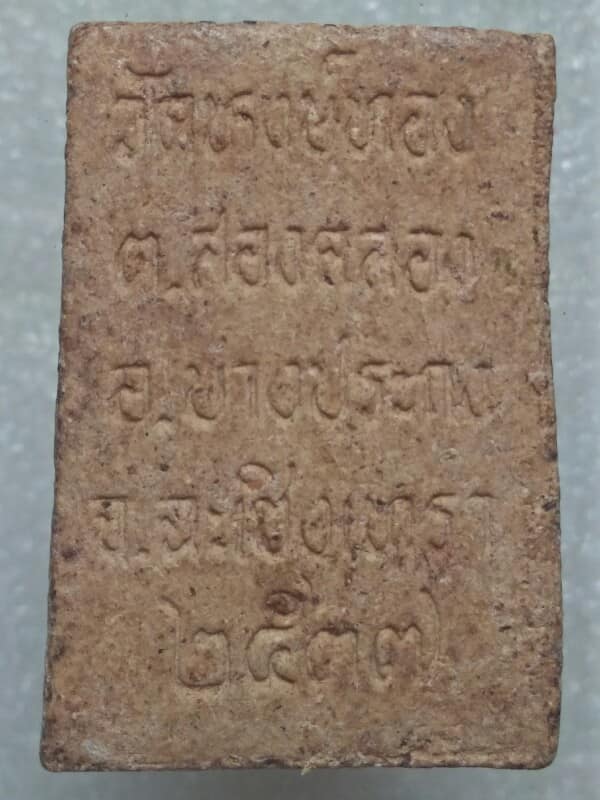 วัดหงษ์ทอง
ต.สองคลอง
อ.บางปะกง
จ.ฉะเชิงเทรา
๒๕๓๗